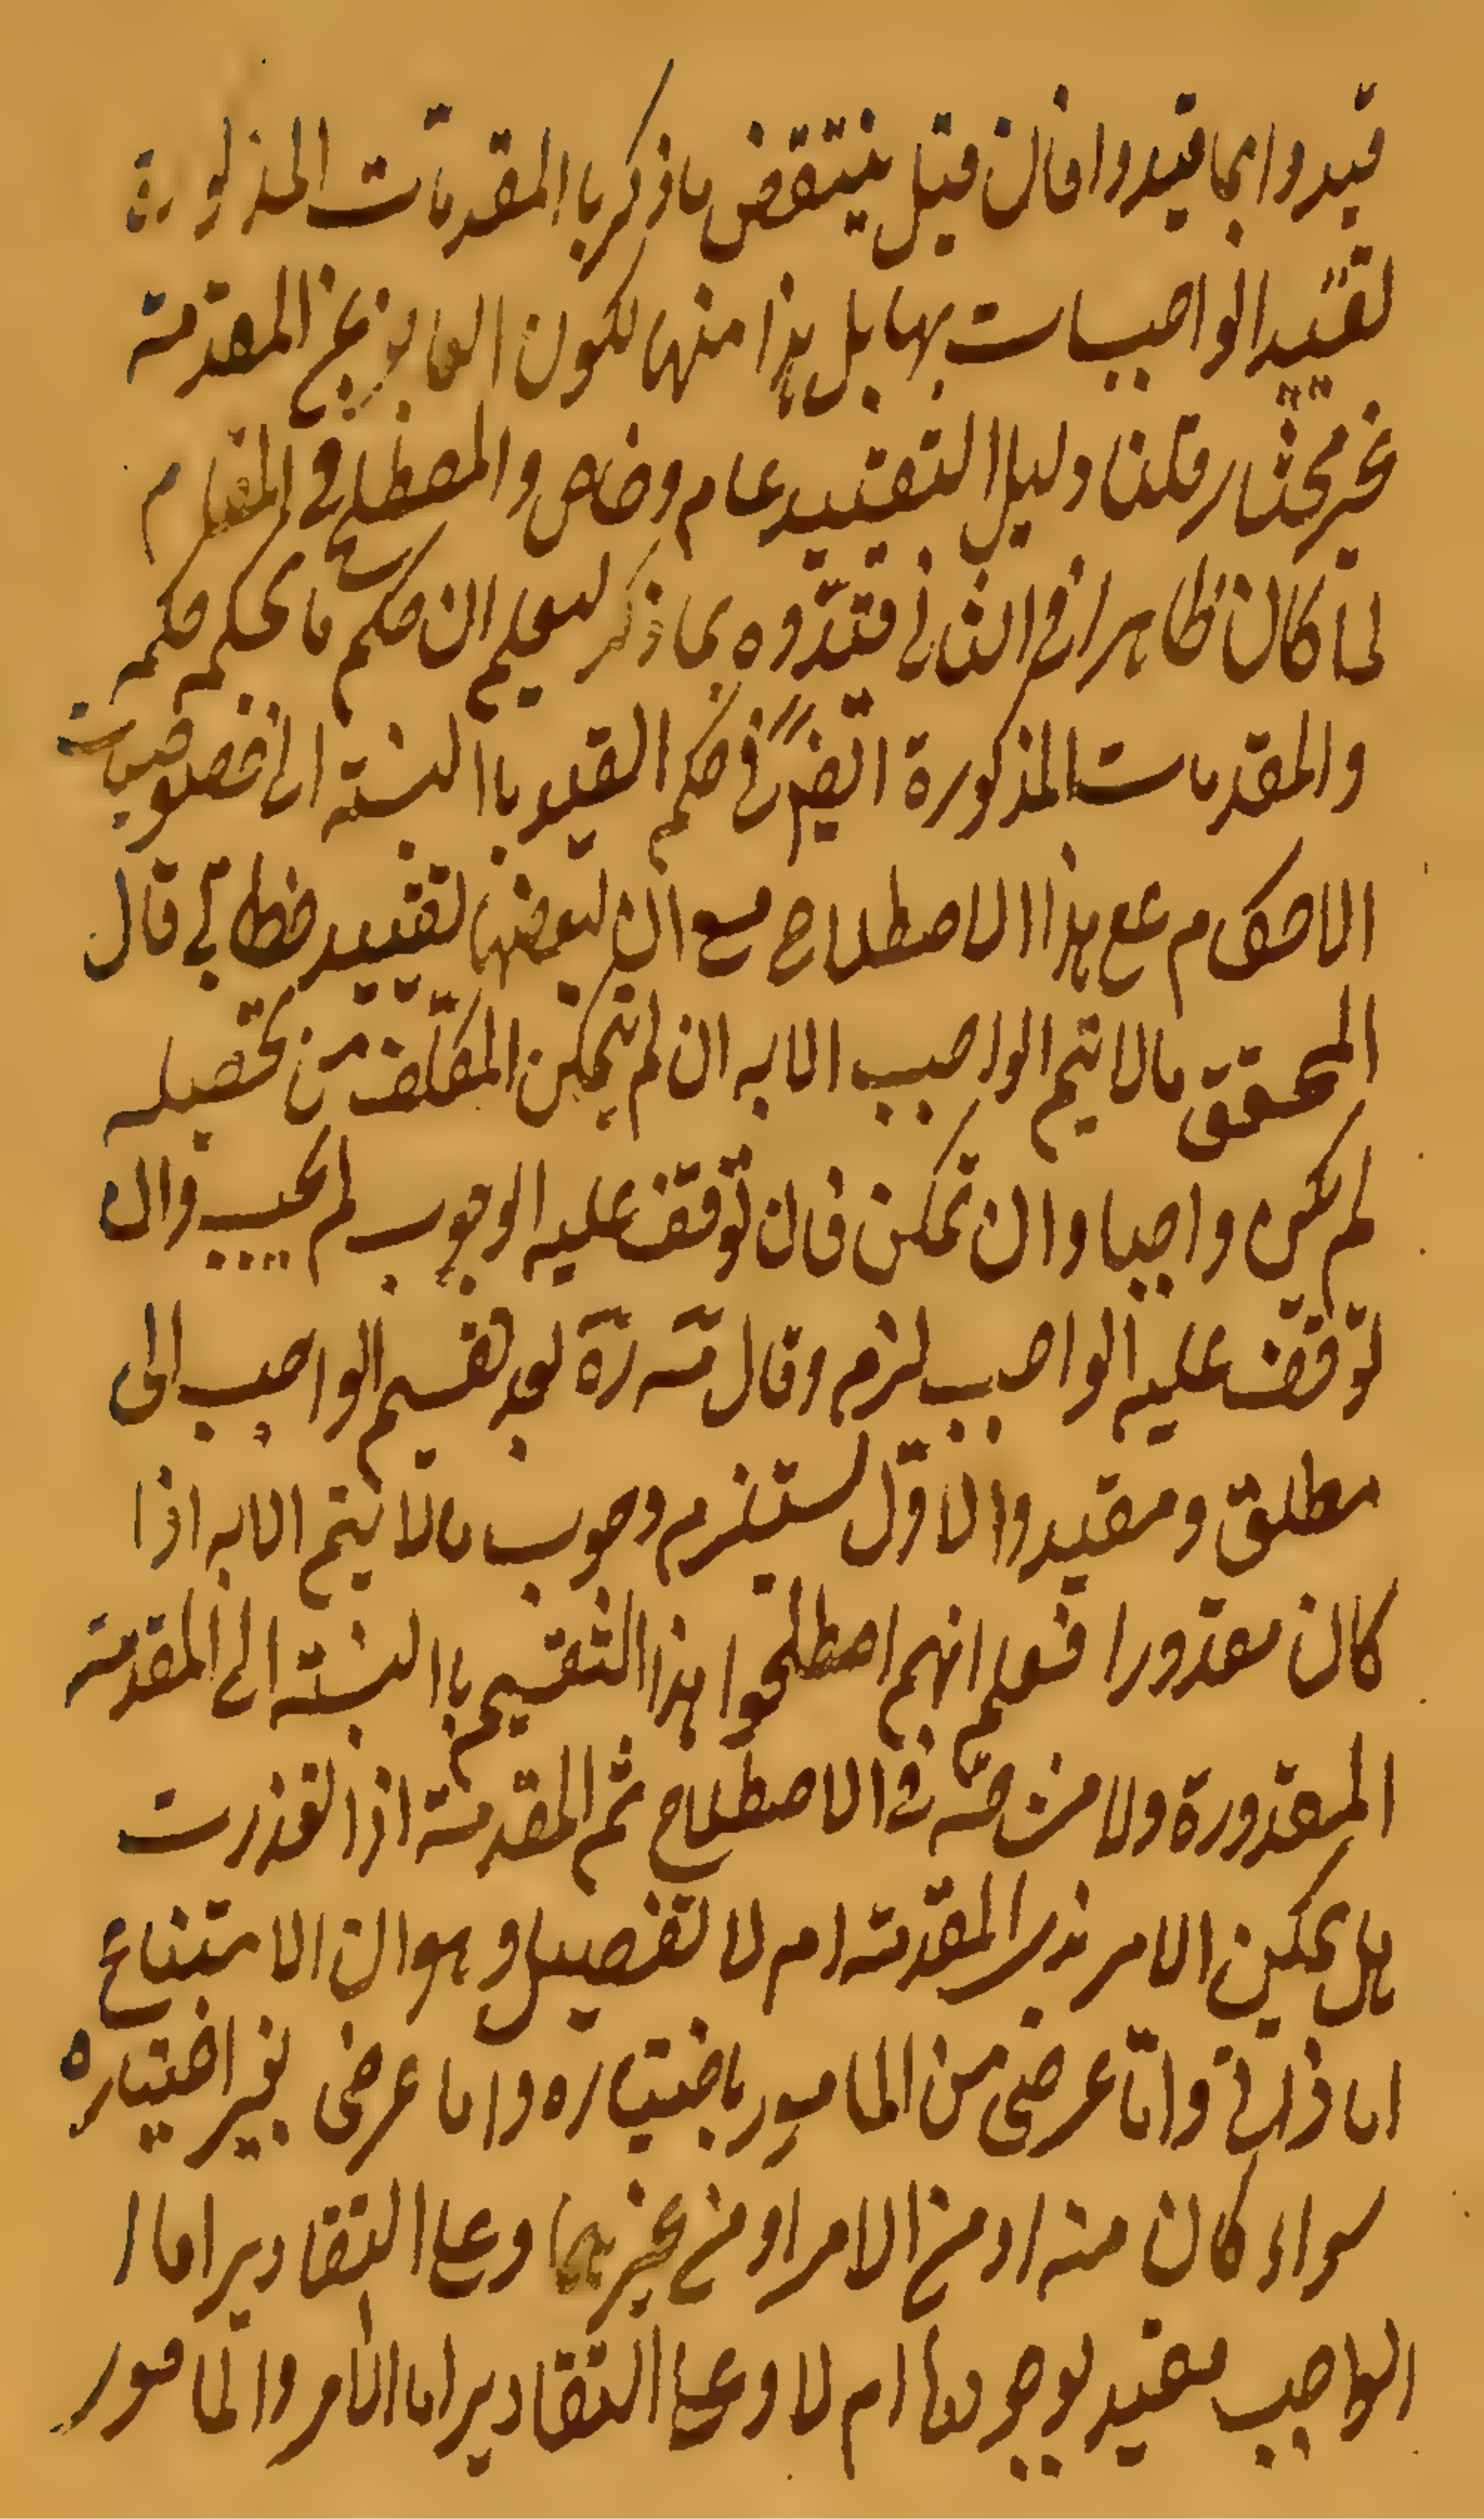 قيدوا بما قيدوا فان قيل ينتقض ما ذكر با المقدمات المذكورة
لتقييد الواجبات بها بل هذا منها لكون العاجز عن المقدمة
غير مختار قلنا دليل التقييد عام وخاص والمصطلح في المقام
لما كان ظاهرا في الثاني قيدوه بما ذكر ليعلم ان حكم ما يحكم حكمه
والمقدمات المذكورة ايضا في حكم القيد با النسبة الى خصوصيات
الاحكام على هذا الاصطلاح مع ان لبعضها تقييد خطابي قال
المحقق ما لا يتم الواجب الا به ان لم يتمكن المكلف من تحصيله
لم يكن واجبا وان تمكن فان توقف عليه الوجوب لم يجب وان
توقف عليه الواجب لزم وقال مته رة بعد تقسيم الواجب الى
مطلق ومقيد والاول يستلزم وجوب ما لا يتم الا به اذا
كان مقدورا فعلم انهم اصطلحوا هذا التقسيم با النسبة الى المقدمة
المقدورة ولا مشاحة في الاصطلاح ثم المقدمة اذا تعذرت
هل يمكن الامر بذيها المقدمة ام لا تفصيل وهو ان الامتناع
اما ذاتي واما عرضي من المامور باختياره واما عرضي بغير اختياره
سواء كان منه او من الامر او من غيرهما وعلى التقادير اما ا
الواجب مقيد بوجودها ام لا وعلى التقادير اما الامر والمامور